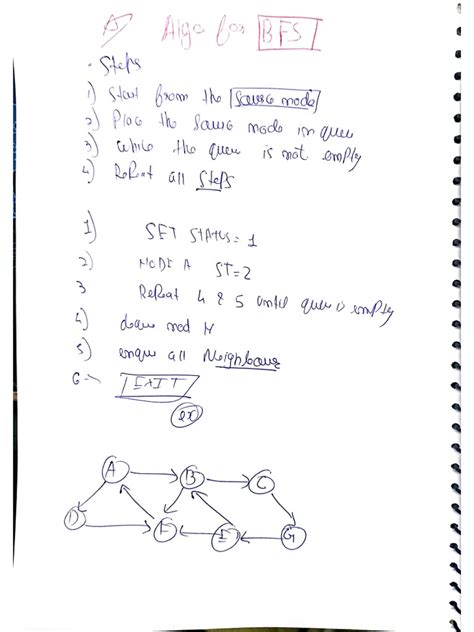 A) Algo for BFS
• Steps
1) Start from the Source node
2) Place the Source node in queu
3) while the queu is not empty
4) RePeat all Steps
1) SET STATUS = 1
2) NODE A ST=2
3 RePeat 4 & 5 until queu is empty
4) node N
5) enque all Neighbour
6 EXIT
ex
A B C
D E F G